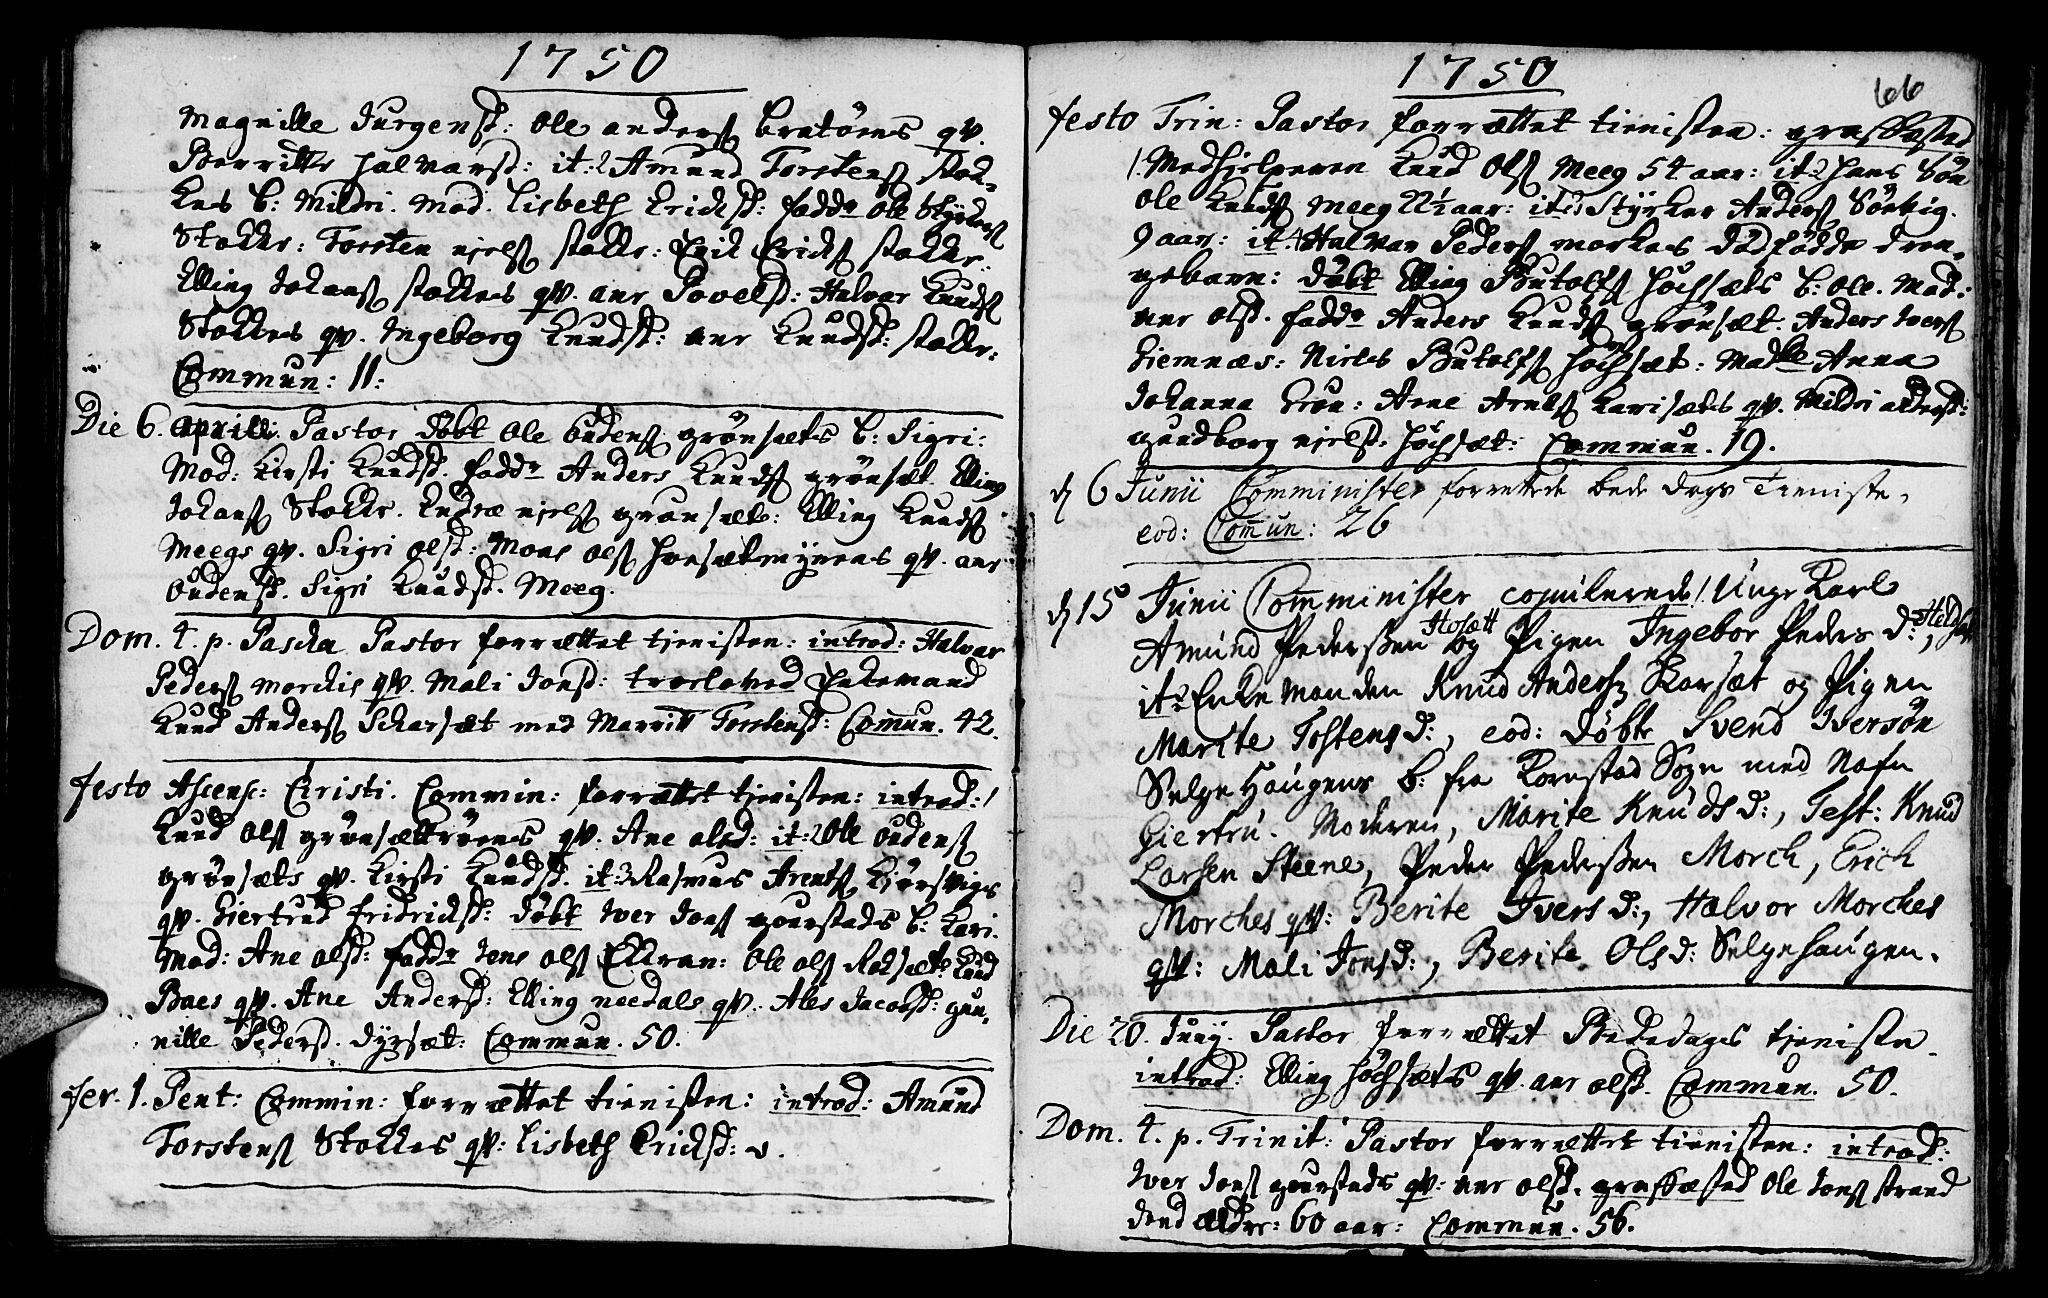 1750
Magnille Jurgensd: Ole Anders Bratöens qv.
Berritte Halvarsd: it: 2 Amund Torstens Stok-
kes b: Mildri. Mod. Lisbeth Ericksd: fadd: Ole Styrckers
Stokke: Torsten niels Stokke: Erik Ericks Stokke:
Elling Johans Stokkes qv. ane Povelsd: Halvar Knuds
Stokkes qv. Ingeborg Knudsd: ane Knudsd: Stokke:
Commun: 11:
Die 6. Aprili: Pastor döbt Ole Oudens grönsets b: Sigri:
Mod: Kirsti Knudsd. fadd: Anders Knuds grönset Elling
Johans Stokke. Endræ niels grönset: Elling Knuds
Meegs qv. Sigri olsd: Mons ols Horsetmyrens qv. ane
Oudensd. Sigri Knudsd. Meeg.
Dom. 4. p. Pascha Pastor forrættet tjenisten: introd: Halvar
Peders morckis qv. Mali Jonsd: troeloved Enkemand
Knud Anders Scharset med Marritt Torstensd: Commun. 42.
Festo Ascens: Christi. Commin: forrættet tjenisten: introd: 1
Knud ols grönsettröens qv. Ane olsd: it: 2 Ole Oudens
grönsets qv. Kirsti Knudsd. it: 3 Rasmus Arents Kjörsvigs
qv. Giertrud fridricksd: döbt Iver Jons gourstads b: Kari.
Mod: Ane olsd: fadd: Jens ols Ellran: Ole ols Roksete Knud
Baes qv. Ane Andersd: Elling needals qv. Ales Jacobsd: gun-
nille Pedersd. dyrset: Commun. 50.
Fer. 1. Pent: Commin: forrættet tienisten: introd: Amund
Torstens Stokkes qv: Lisbeth Ericksd:
1750
66
Festo Trin: Pastor forrættet tienisten: graffested
1. Medhjelperen Knud Ols Meeg 54 aar: it: 2 hans Sön
Ole Knuds Meeg 22½ aar: it: 3 Styrker Anders Sörvig.
9 aar: it: 4 Halvar Peders morkes dödfödde dren-
gebarn: döbt Elling Butolfs Höchsets b: Ole. Mod:
ane olsd. fadd: Anders Knuds grönset. Anders Ivers
Giemnæs: Butolfs Höchset: Anna
Johanna Grön: Arne Arnes Karisets qv. Mildri andersd:
gundborg nielsd. Höchset: Commun. 19.
d 6 Junii Comminister forrettede bede dags Tieniste,
eod: Commun: 26
d 15 Junii Comminister copulerede 1 Unge Karl
Amund Pederssen Hosætt og Pigen Ingebor Peders d:,
it: 2 Enke Manden Knud Andersz Skarsæt og Pigen
Marite Tostens d:, eod: Döbte Svend Iversön
Selge Haugens b: fra Kornstad Sogn med Nafn
Giertru. Moderen, Marite Knuds d:, Test: Knud
Larsen Steene, Peder Pederssen Morch, Erich
Morches qv: Berite Ivers d:, Halvor Morches
qv: Mali Jons d:, Berite Ols d: Selgehaugen.
Die 20. Junij. Pastor forrættet Bededags tjeniste.
introd: Elling Höchsets qv. ane olsd. Commun. 50.
Dom. 4. p. Trinit: Pastor forrættet tienisten: introd:
Iver Jons gourstads qv: ane olsd. graffæsted Ole Jons strand
dend Eldre: 60 aar: Commun. 56.